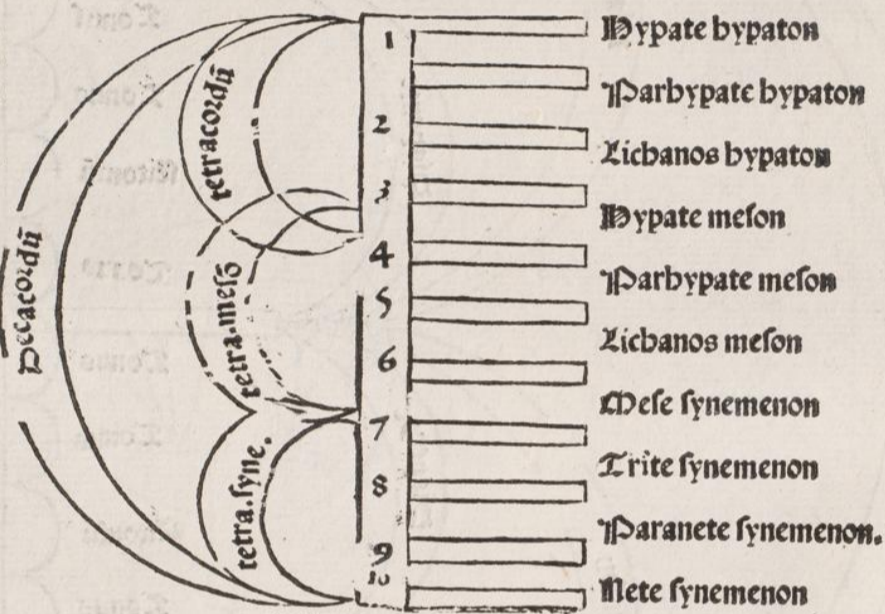 Decacordū
tetracordū
tetra.meſō
tetra.ſyne.
1
2
3
4
5
6
7
8
9
10
Hypate hypaton
Parhypate hypaton
Lichanos hypaton
Hypate meſon
Parhypate meſon
Lichanos meſon
Meſe ſynemenon
Trite ſynemenon
Paranete ſynemenon.
Nete ſynemenon